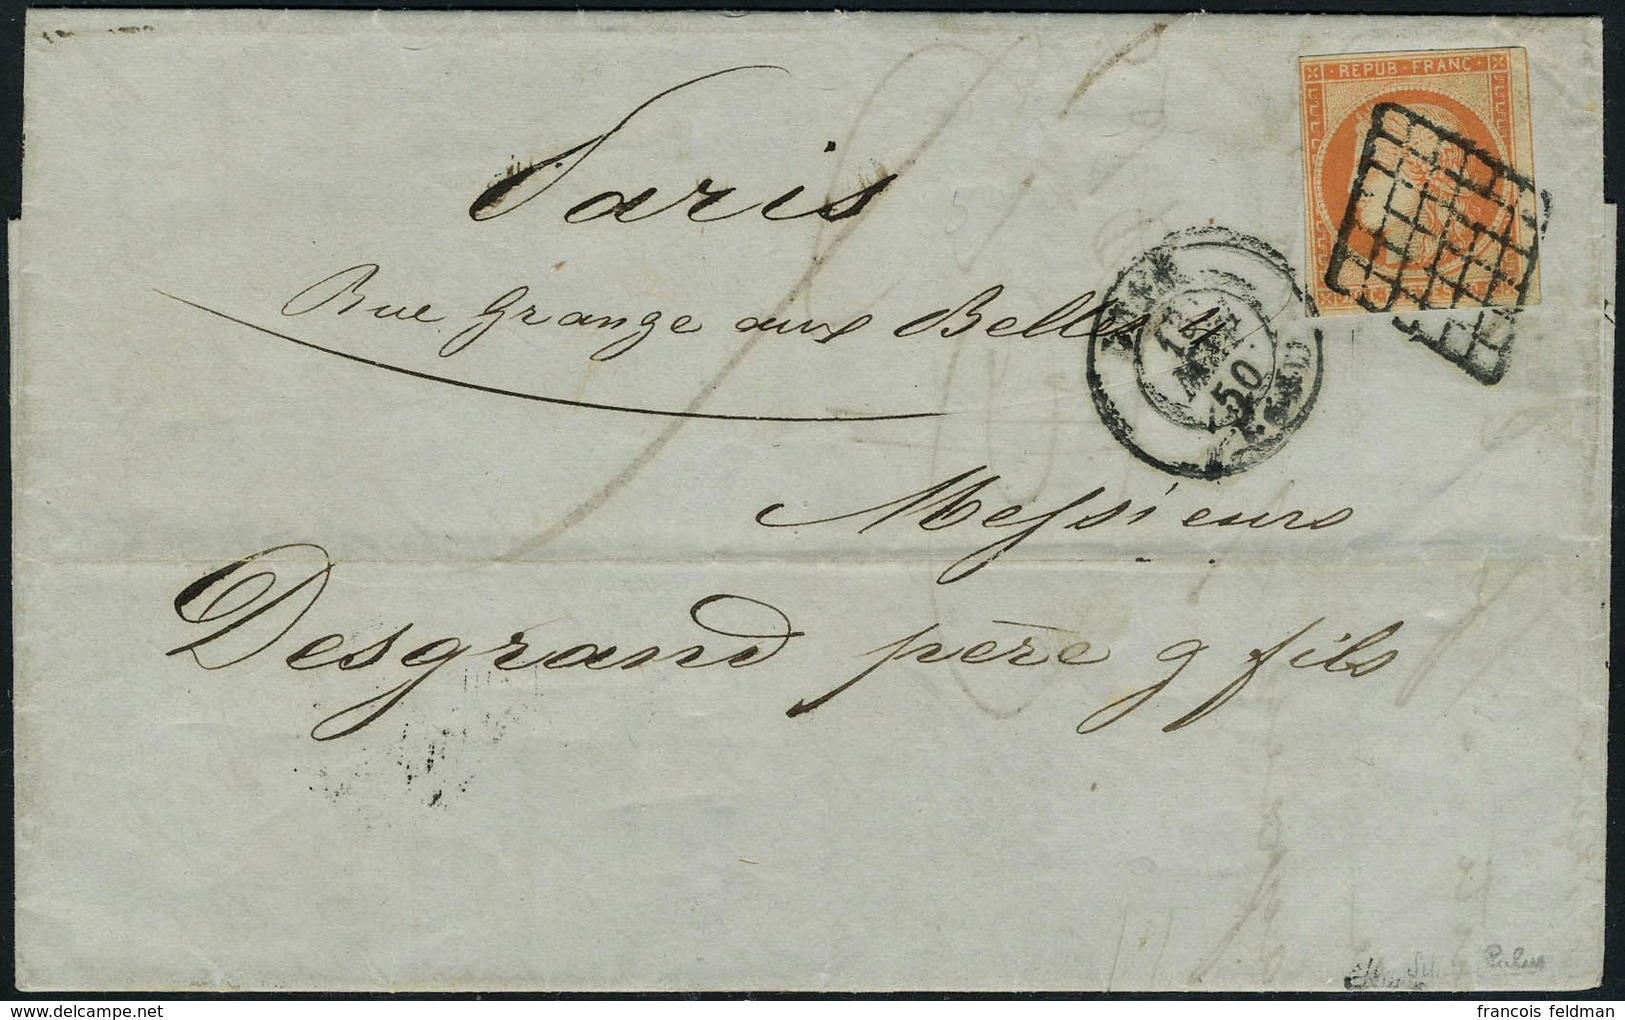 REPUB · FRANC ·
Paris
Rue Grange aux Belles 4
50
Messieurs
Desgrand père & fils
delcampe.net
francois feldman